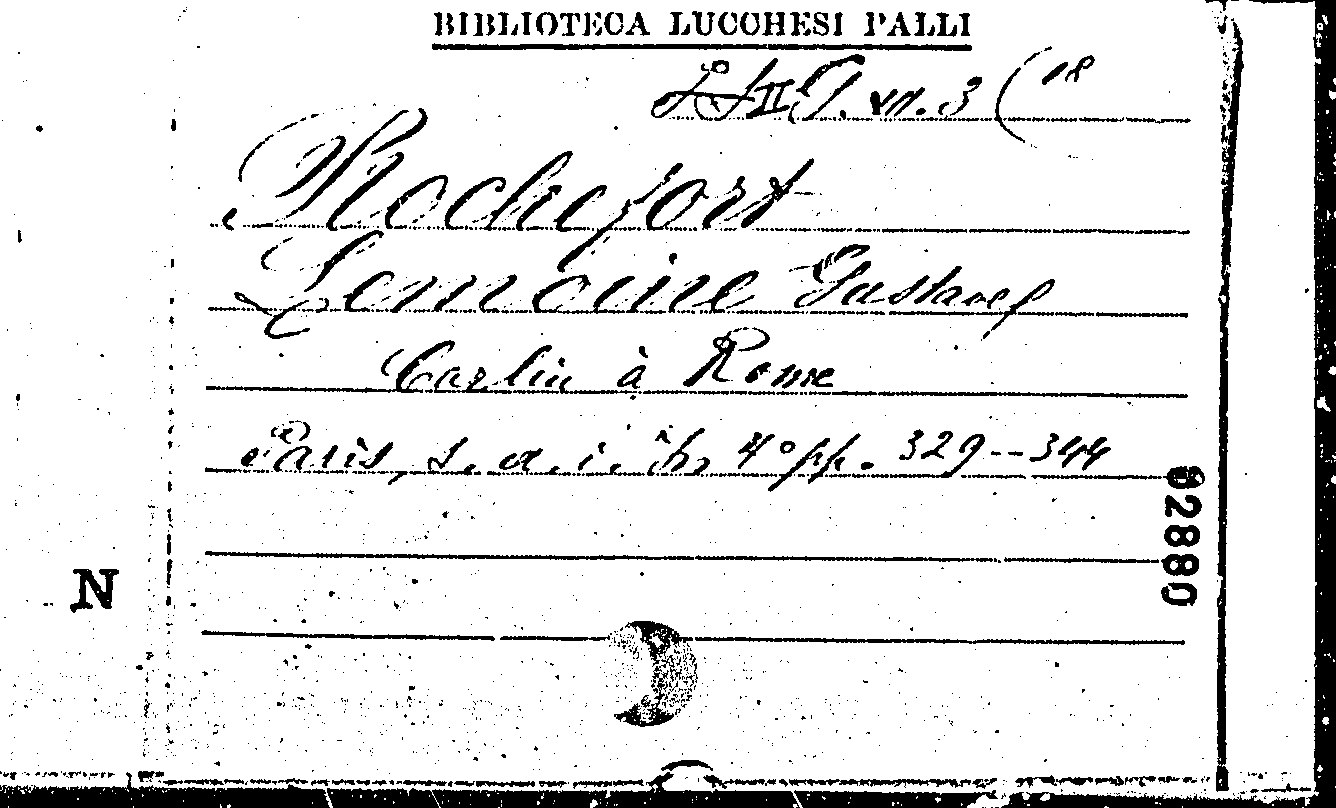 BIBLIOTECA LUCCHESI PALLI
VII. 3 (18
Rochefort
Lemoine Gustave
Carlin à Rome
Paris, s. a. i. in 4° pp. 329--344
62880
N